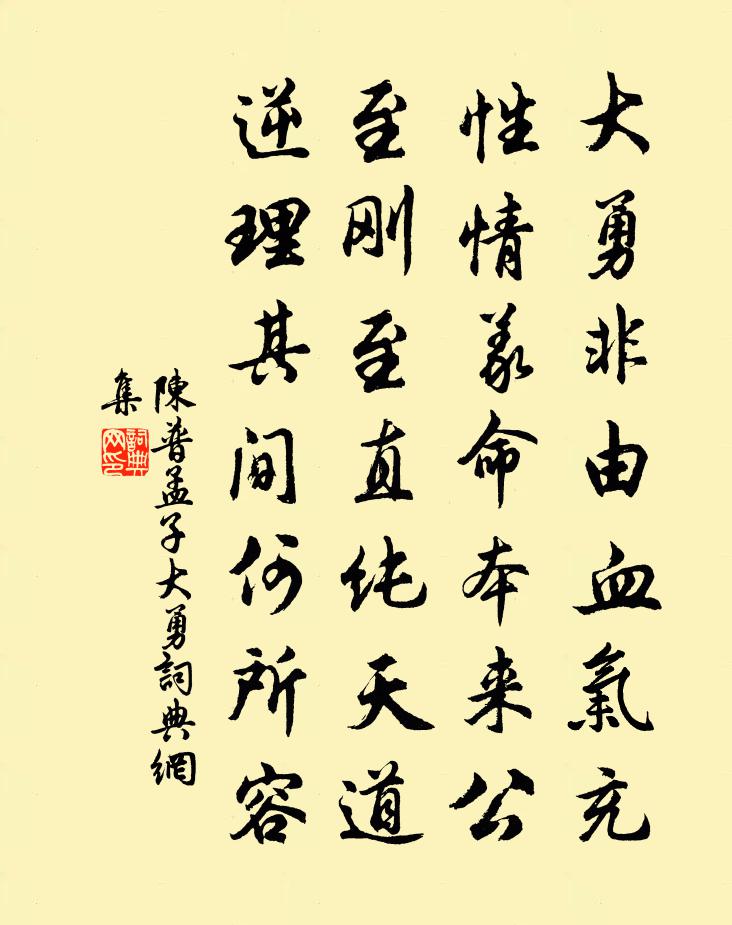 大勇非由血氣充
性情義命本来公
至刚至直纯天道
逆理其间何所容
陳普孟子大勇詞典網
集
詞典网印